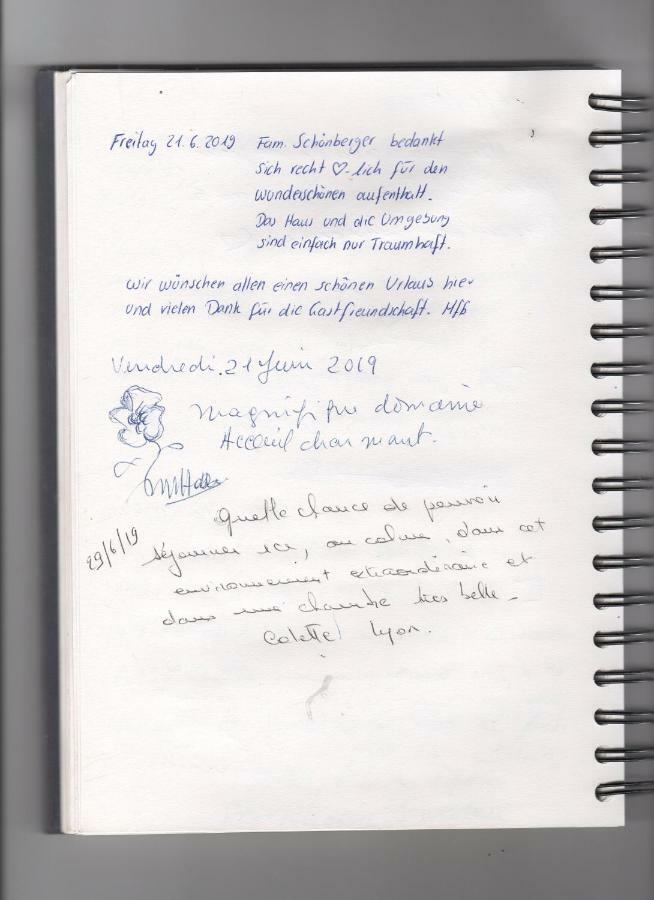 Freitag 21.6.2019 Fam. Schönberger bedankt
sich recht ♡-lich für den
wunderschönen aufenthalt.
Das Haus und die Umgebung
sind einfach nur Traumhaft.
Wir wünschen allen einen schönen Urlaub hier
und vielen Dank für die Gastfreundschaft. Mfg
Vendredi.21 Juin 2019
Magnifique domaine
Acceuil charmant.
29/6/19
Quelle chance de pouvoir
séjourner ici, au calme, dans cet
environnement extraordinaire et
dans une chambre très belle.
Colette Lyon.